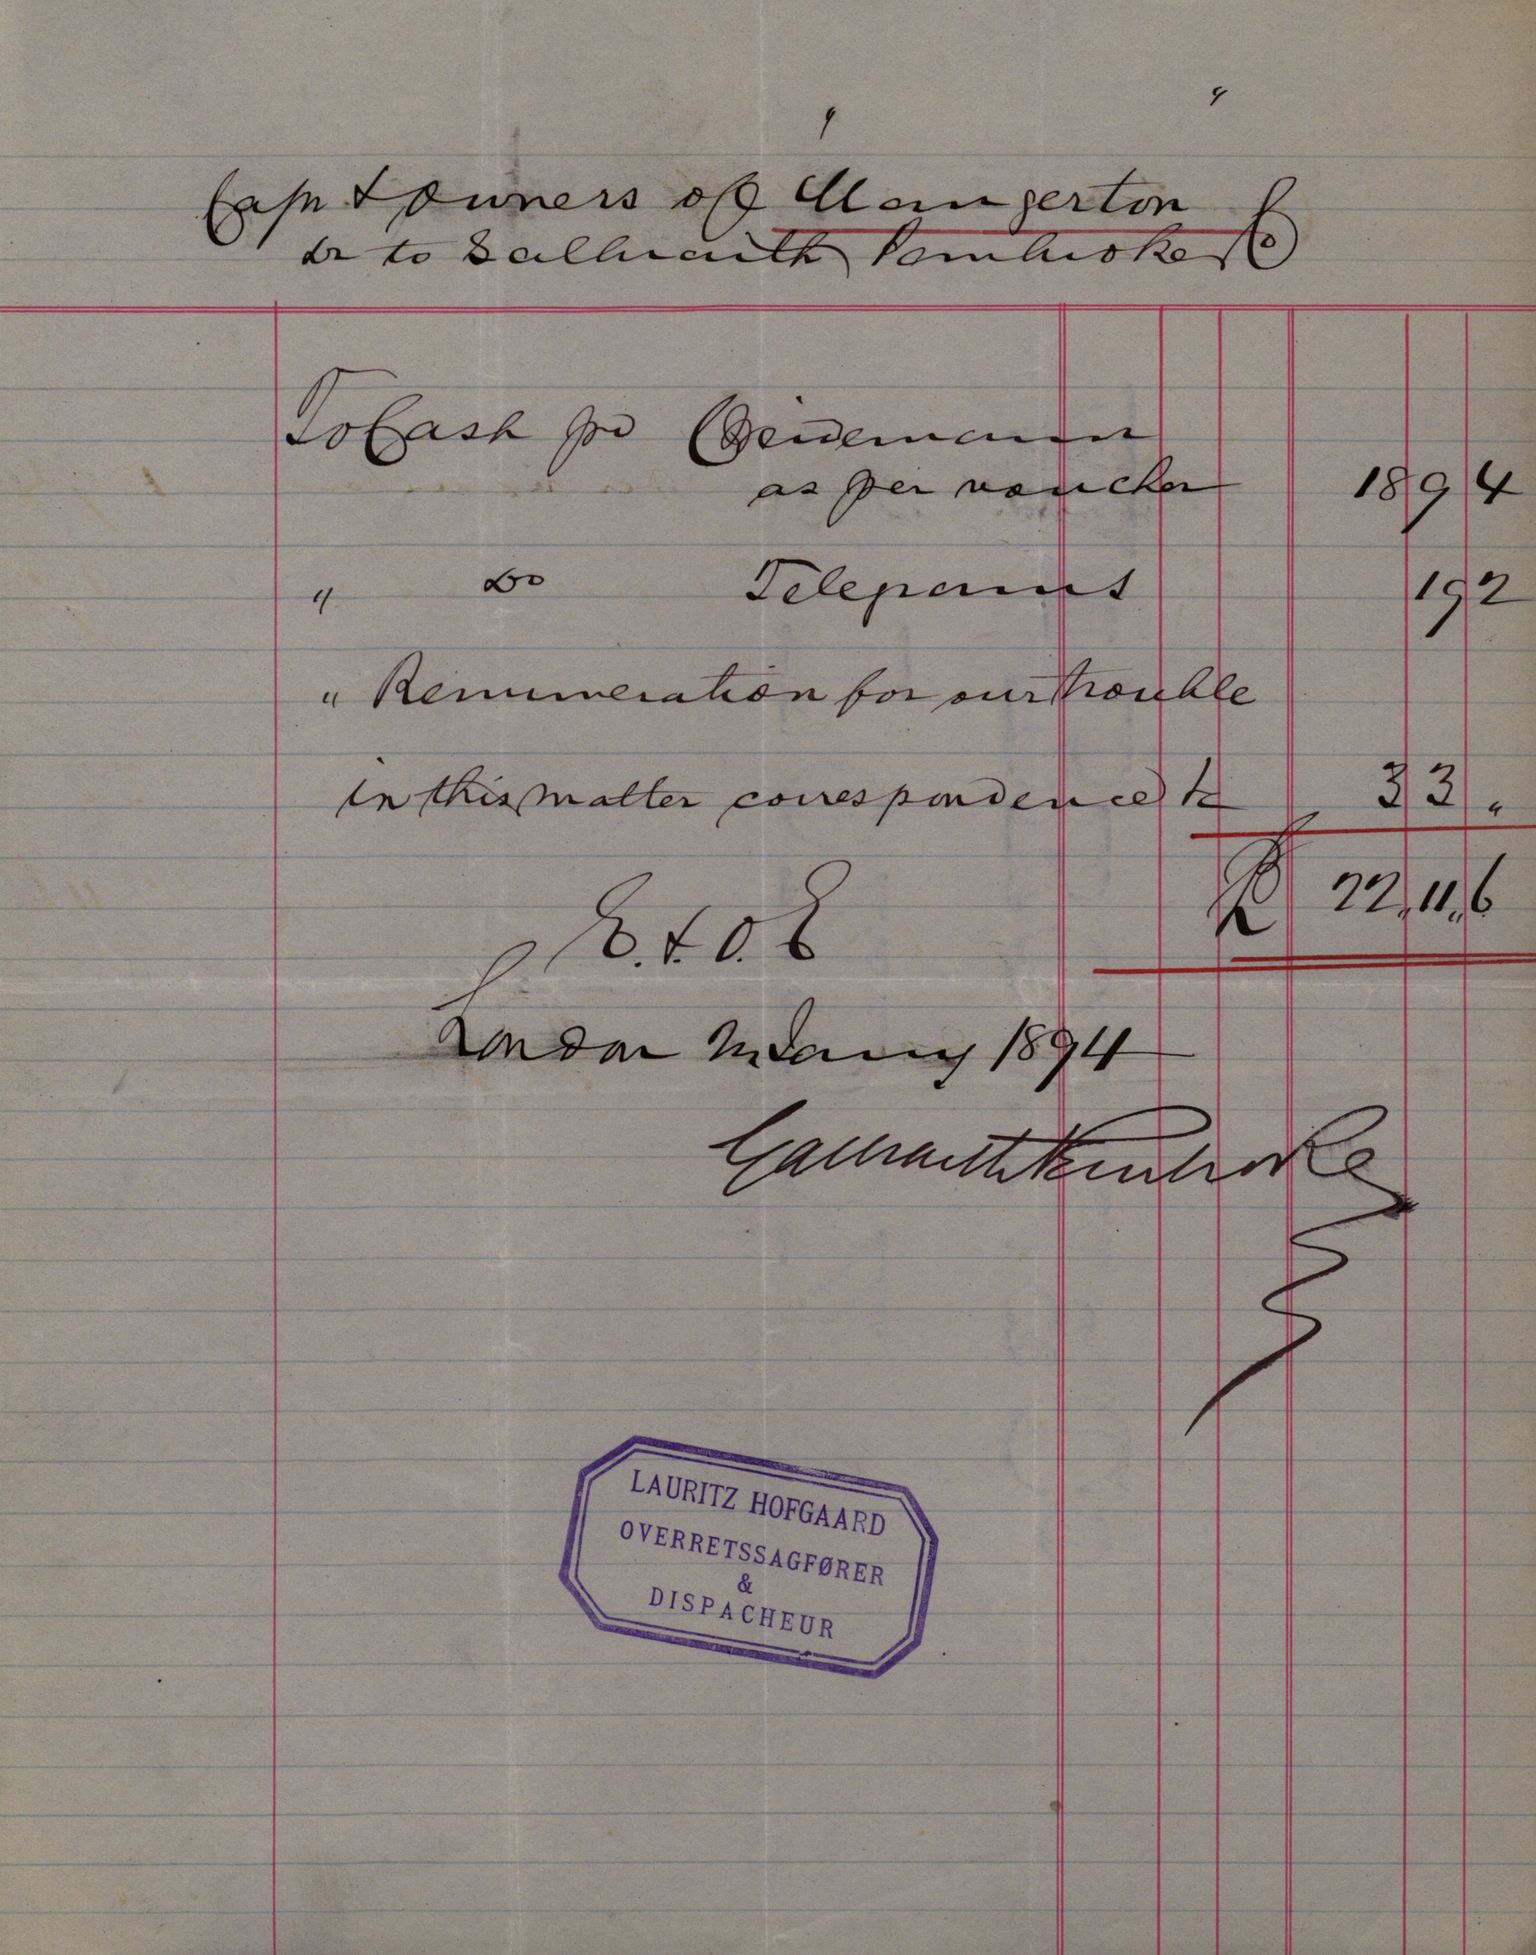 Capn & Owners of Mangerton
Dr to Galbraith Pembroke & Co
To Cash pd Weidemann
as per voucher 18 9 4
" Do Telegrams 19 2
" Remuneration for our trouble
in this matter correspondence &c 3 3 "
£ 22,11,6
E. & O. E
London 1894
Galbraith Pembroke
LAURITZ HOFGAARD
OVERRETSSAGFØRER
&
DISPACHEUR